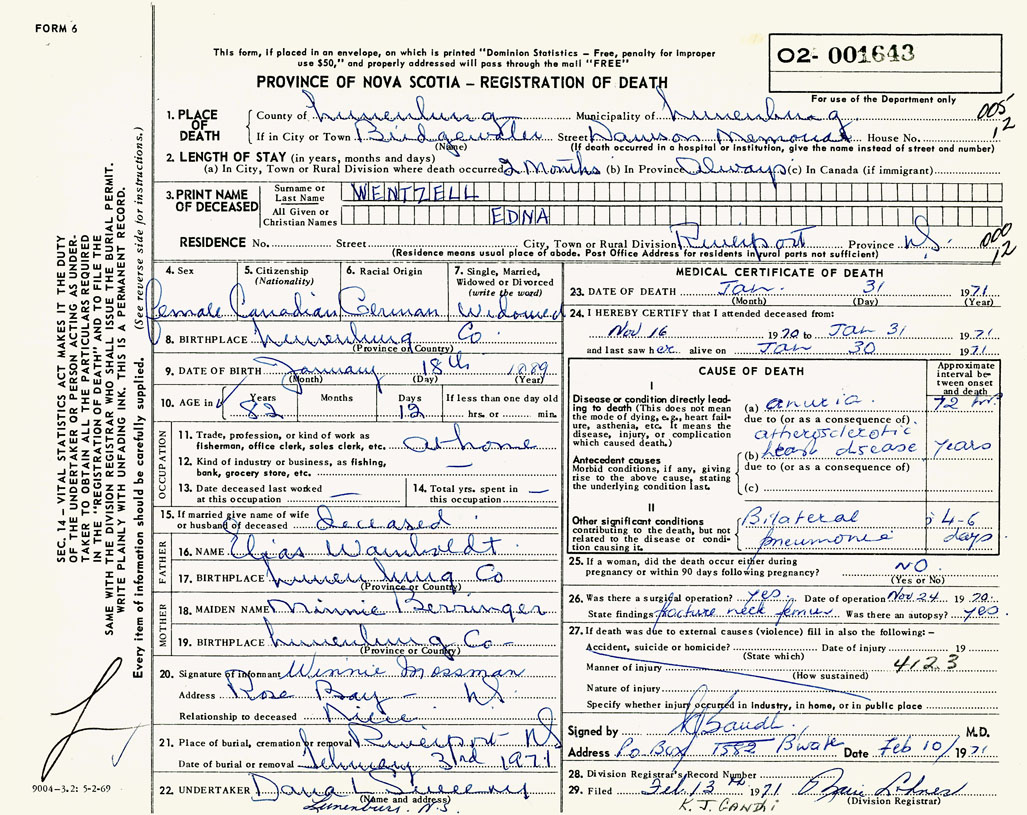 FORM 6
This form, if placed in an envelope, on which is printed "Dominion Statistics – Free, penalty for improper
use $50," and properly addressed will pass through the mail "FREE"
O2- 001643
PROVINCE OF NOVA SCOTIA – REGISTRATION OF DEATH
For use of the Department only
1. PLACE OF DEATH
County of Lunenburg Municipality of Lunenburg
005
12
If in City or Town Bridgewater Street Dawson Memorial House No.
(Name) (If death occurred in a hospital or institution, give the name instead of street and number)
2. LENGTH OF STAY (in years, months and days)
(a) In City, Town or Rural Division where death occurred 2 Months (b) In Province Always (c) In Canada (if immigrant)
3. PRINT NAME OF DECEASED
Surname or Last Name WENTZELL
All Given or Christian Names EDNA
RESIDENCE No. Street City, Town or Rural Division Riverport Province N.S.
000
12
(Residence means usual place of abode. Post Office Address for residents in rural parts not sufficient)
4. Sex
female
5. Citizenship
(Nationality)
Canadian
6. Racial Origin
German
7. Single, Married,
Widowed or Divorced
(write the word)
Widowed
8. BIRTHPLACE Lunenburg Co.
(Province or Country)
9. DATE OF BIRTH January 18th 1889
(Month) (Day) (Year)
10. AGE in
Years 82
Months
Days 12
If less than one day old
hrs. or min.
OCCUPATION
11. Trade, profession, or kind of work as
fisherman, office clerk, sales clerk, etc. at home
12. Kind of industry or business, as fishing,
bank, grocery store, etc. —
13. Date deceased last worked
at this occupation —
14. Total yrs. spent in
this occupation —
15. If married give name of wife
or husband of deceased deceased
FATHER
16. NAME Elias Wamboldt
17. BIRTHPLACE Lunenburg Co
(Province or Country)
MOTHER
18. MAIDEN NAME Minnie Berringer
19. BIRTHPLACE Lunenburg Co –
(Province or Country)
20. Signature of informant Winnie Mossman
Address Rose Bay – N.S.
Relationship to deceased Niece
21. Place of burial, cremation or removal Riverport NS
Date of burial or removal February 3rd 1971
22. UNDERTAKER Dana L Sweeny
(Name and address)
Lunenburg N.S.
MEDICAL CERTIFICATE OF DEATH
23. DATE OF DEATH Jan. 31 1971
(Month) (Day) (Year)
24. I HEREBY CERTIFY that I attended deceased from:
Nov 16 1970 to Jan 31 1971
and last saw her alive on Jan 30 1971
CAUSE OF DEATH
Approximate
interval be-
tween onset
and death
I
Disease or condition directly lead-
ing to death (This does not mean
the mode of dying, e.g., heart fail-
ure, asthenia, etc. It means the
disease, injury, or complication
which caused death.)
(a) anuria 72 hr.
due to (or as a consequence of)
Antecedent causes
Morbid conditions, if any, giving
rise to the above cause, stating
the underlying condition last.
atherosclerotic
(b) heart disease years
due to (or as a consequence of)
(c)
II
Other significant conditions
contributing to the death, but not
related to the disease or condi-
tion causing it.
Bilateral
pneumonia
4-6
days
25. If a woman, did the death occur either during
pregnancy or within 90 days following pregnancy? NO
(Yes or No)
26. Was there a surgical operation? yes Date of operation Nov 24 1970
State findings fracture neck femur Was there an autopsy? yes
27. If death was due to external causes (violence) fill in also the following: –
Accident, suicide or homicide? Date of injury 19
(State which)
Manner of injury 4123
(How sustained)
Nature of injury
Specify whether injury occurred in industry, in home, or in public place
Signed by KJGandhi M.D.
Address Po Box 1582 Bwater Date Feb 10/1971
28. Division Registrar's Record Number
29. Filed Feb 13th 1971
(Division Registrar)
K. J. GANDHI
SEC. 14 – VITAL STATISTICS ACT MAKES IT THE DUTY
OF THE UNDERTAKER OR PERSON ACTING AS UNDER-
TAKER TO OBTAIN ALL THE PARTICULARS REQUIRED
IN THE "REGISTRATION OF DEATH" AND TO FILE THE
SAME WITH THE DIVISION REGISTRAR WHO SHALL ISSUE THE BURIAL PERMIT.
WRITE PLAINLY WITH UNFADING INK. THIS IS A PERMANENT RECORD.
Every item of information should be carefully supplied. (See reverse side for instructions.)
9004-3.2: 5-2-69